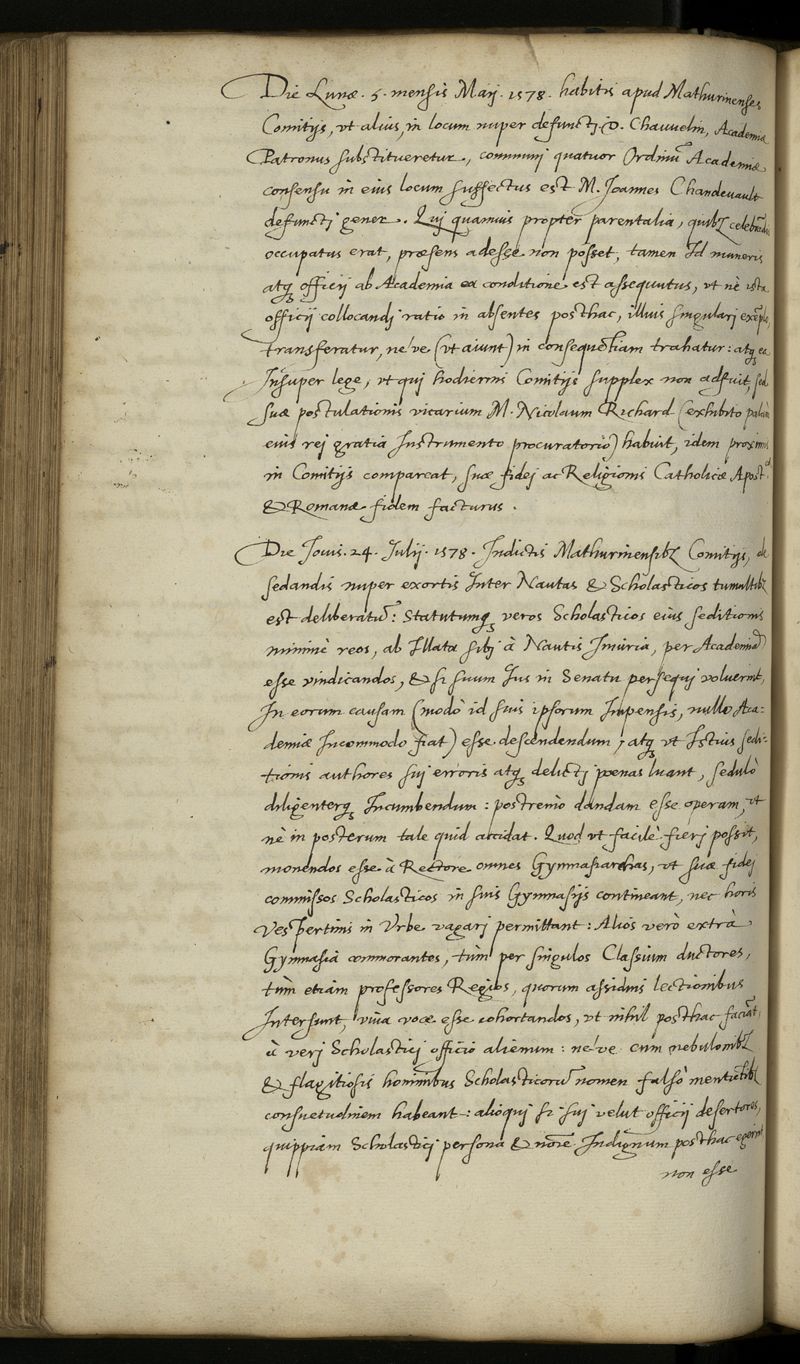 Die Lunæ. 5. mensis Maij. 1578. habitis apud Mathurinenses
Comitijs, vt alius, in locum nuper defuncti D. Chauuelin, Academiæ
Patronus substitueretur, communj quatuor Ordinū Academiæ
consensu in eius locum suffectus est M. Joannes Chandeuault
defunctj gener. Quj quamuis propter parentalia, quibꝫ celebrādis
occupatus erat, præsens adesse non posset, tamen Id muneris
atqꝫ officij ab Academia ea conditione est assequutus, vt nè ista
officij collocandj ratio in absentes posthac, illius singularj exēplo,
transferatur, nè've (vt aiunt) in consequētiam trahatur: atqꝫ ea
Insuper lege, vt quj hodiernis Comitijs supplex non adfuit, sed
suæ postulationis vicarium M. Nicolaum Richard (exhibito palàm
eius rej gratia Instrumento procuratorio) habuit, idem proximis
in Comitijs compareat, suæ fidej ac Religionis Catholicæ Apost.
& Romanæ fidem facturus.
Die Jouis. 24. Julij. 1578. Indictis Mathurinensibꝫ Comitijs, de
sedandis nuper exortis Inter Nautas & Scholasticos tumultibꝫ
est deliberatū: Statutumqꝫ veros Scholasticos eius seditionis
minimè reos, ab Illata sibj à Nautis Iniuria, per Academiā
esse vindicandos, & si suum Jus in Senatu persequi voluerint,
In eorum causam (modò id suis ipsorum Impensis, nullo Aca-
demiæ Incommodo fiat) esse descendendum, atqꝫ vt Istius sedi-
tionis authores suj erroris atqꝫ delictj pœnas luant, sedulò
diligenterqꝫ Incumbendum: postremò dandam esse operam, vt
nè in posterum tale quid accidat. Quod vt facilè fierj possit,
monendos esse à Rectore omnes Gymnasiarchas, vt suæ fidej
commissos Scholasticos in suis Gymnasijs contineant, nec horis
Vespertinis in Vrbe vagarj permittant: Alios verò extrà
Gymnasia commorantes, tùm per singulos Classium ductores,
tùm etiam professores Regios, quorum assiduis lectionibus
Intersunt, viua voce esse cohortandos, vt nihil posthac faciāt
à verj Scholasticj officio alienum: nè've cum nebulonibꝫ
& flagitiosis hominibus Scholasticorū nomen falsò mentiētibꝫ
consuetudinem habeant: alioqui si suj velut officij desertores,
quippiam Scholasticj persona & noīe Indignum posthac egerint
non esse